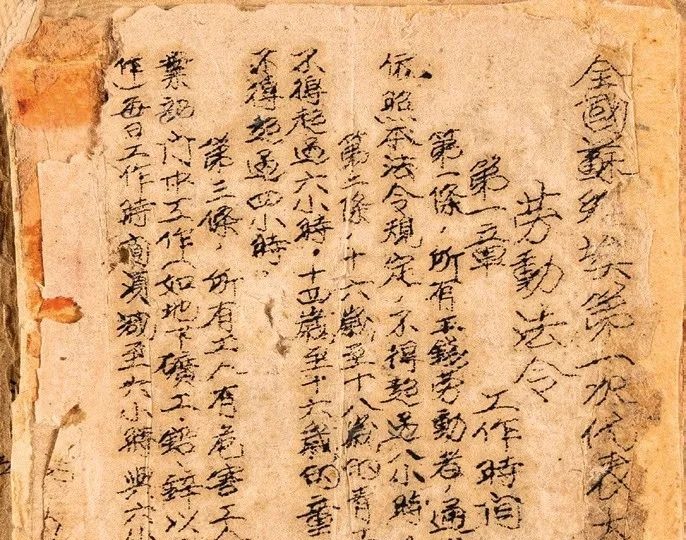 全國蘇乡埃第一次代表大
劳動法令
第一章 工作時间
第一條,所有工錢劳動者,通
依照本法令規定,不得超過八小時
第二條,十六歲至十八歲的青
不得超過六小時。十四歲至十六歲的童
不得超過四小時
第三條,所有工人有危害工人
業部门中工作(如地下礦工、鉛、鋅以
作)每日工作時间須減至六小時與六